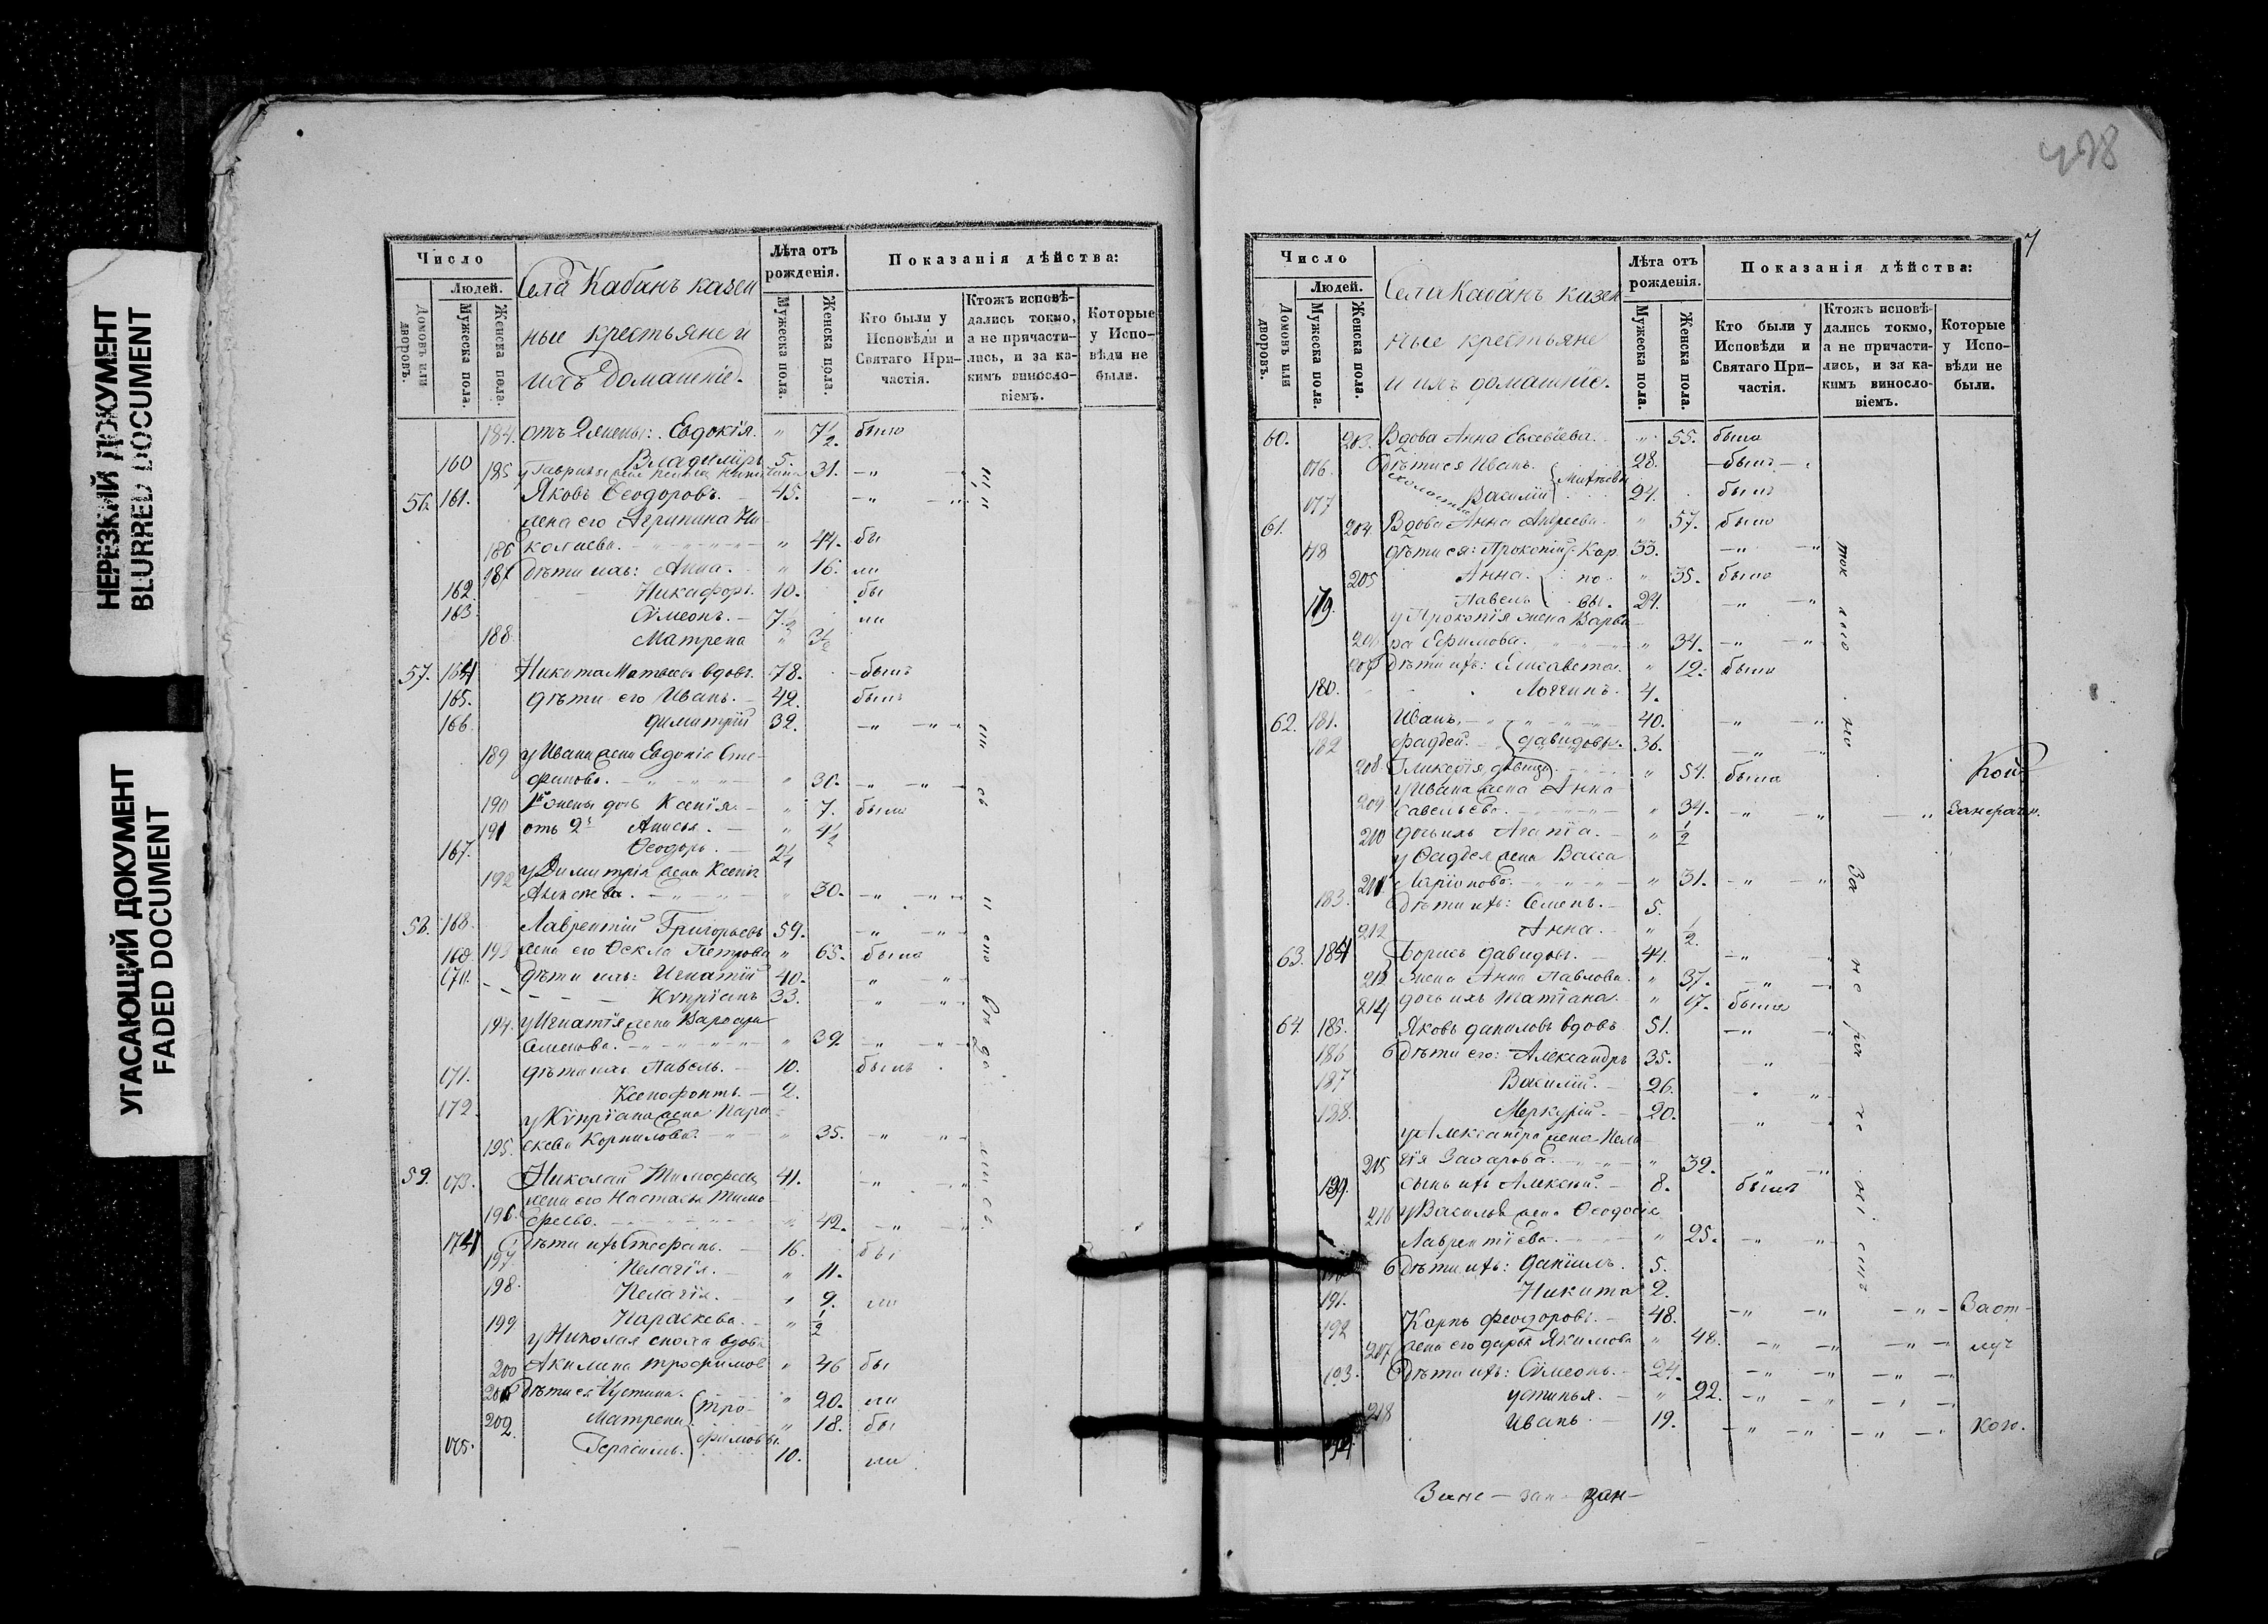 НЕРЕЗКИЙ ДОКУМЕНТ
BLURRED DOCUMENT
УГАСАЮЩИЙ ДОКУМЕНТ
FADED DOCUMENT
Число
Людей.
Домовъ или дворовъ.
Мужеска пола.
Женска пола.
Села Кабанъ казен
ные крестьяне и
ихъ домашніе.
Лѣта отъ рожденія.
Мужеска пола.
Женска пола.
Показанія дѣйства:
Кто были у Исповѣди и Святаго Причастія.
Ктожъ исповѣдались токмо, а не причастились, и за какимъ винословіемъ.
Которые у Исповѣди не были.
184. отъ 2 жены: Евдокія. " 7½ была
160 Владиміръ 5.
185 31.
56. 161. Яковъ Ѳеодоровъ. 45.
жена его Агрипина Ни
186 колаева. " 44. бы
187 дѣти ихъ: Анна. " 16. ли
162. Никифоръ. 10. бы
163. Сѵмеонъ. 7½ ли
188. Матрена " 3½
57. 164 Никита Матвеевъ вдовъ. 78. былъ
165. дѣти его Иванъ. 42. былъ
166. Димитрій 32.
189 у Ивана жена Евдокія Сте-
фанова. " 30.
190 1й жены дочь Ксенія. " 7. была
191 отъ 2й Анисья. " 4½
167. Ѳеодоръ. 2¼
192 у Димитрія жена Ксенія
" 30.
58. 168. Лаврентій Григорьевъ 59.
193 жена его Ѳекла Петрова " 65. была
дѣти ихъ: Игнатій 40.
Кѵпріанъ 33.
194. у Игнатія жена Варвара
Семенова. " 39
171. дѣти ихъ Павелъ. 10. былъ
172. Ксенофонтъ. 2.
у Кѵпріана жена Пара
195. скева Корнилова. " 35.
59. 173. Николай Тимофеевъ 41.
жена его Настасья Тимо
196. феева. " 42.
174 Дѣти ихъ Стефанъ. 16. бы
197 Пелагія. " 11.
198. Пелагія. " 9. ли
199 Параскева. " ½
у Николая сноха вдова
200 Акилина Трофимов " 46 бы
201 Дѣти ея Иустина. тро- " 20. ли
202. Матрена фимовы. " 18. бы
175. Герасимъ. 10. ли
428
7
Число
Людей.
Домовъ или дворовъ.
Мужеска пола.
Женска пола.
Села Кабанъ казен
ные крестьяне
и ихъ домашніе.
Лѣта отъ рожденія.
Мужеска пола.
Женска пола.
Показанія дѣйства:
Кто были у Исповѣди и Святаго Причастія.
Ктожъ исповѣдались токмо, а не причастились, и за какимъ винословіемъ.
Которые у Исповѣди не были.
60. 203. Вдова Анна Евсевіева. " 55. была
176. Дѣти ея Иванъ. 28. былъ
177 Василій 24. былъ
61. 204. Вдова Анна Андреева. " 57. была
178 дѣти ея: Прокопій Кар 33.
205 Анна. по " 35. была
179. Павелъ вы. 24.
у Прокопія жена Варва
206 ра Ефимова. " 34.
207 Дѣти ихъ: Елисавета. " 12. была
180. Логгинъ. 4.
62. 181. Иванъ. 40.
182 Фаддей. Давидовы. 36.
208. Гликерія девица " 54. была
у Ивана жена Анна
209 Савельева. " 34.
210 дочь ихъ Агапіа. " ½
у Ѳаддея жена Васса
211 Ларіонова. " 31.
183. Дѣти ихъ: Семенъ. 5.
212 Анна. " ½
63. 184 Борисъ Давидовъ. 44.
213 Жена Анна Павлова. " 37.
214 дочь ихъ Татіана. " 17. была
64. 185. Яковъ Даниловъ вдовъ 51.
186 Дѣти его: Александръ 35.
187 Василій. 26.
188. Меркурій. 20.
у Александра жена Пела
215 гія Захарова. " 32.
189. сынъ ихъ Алексій. 8. былъ
216 у Василья жена Ѳеодосія
Лаврентіева. " 25.
Дѣти ихъ: Даніилъ. 5.
191. Никита 2.
192 Карпъ Феодоровъ. 48. Заот-
217 жена его Дарья Якимова " 48. луч
193. Дѣти ихъ: Сѵмеонъ. 24.
218 устинья. " 22.
Иванъ. 19. кою.